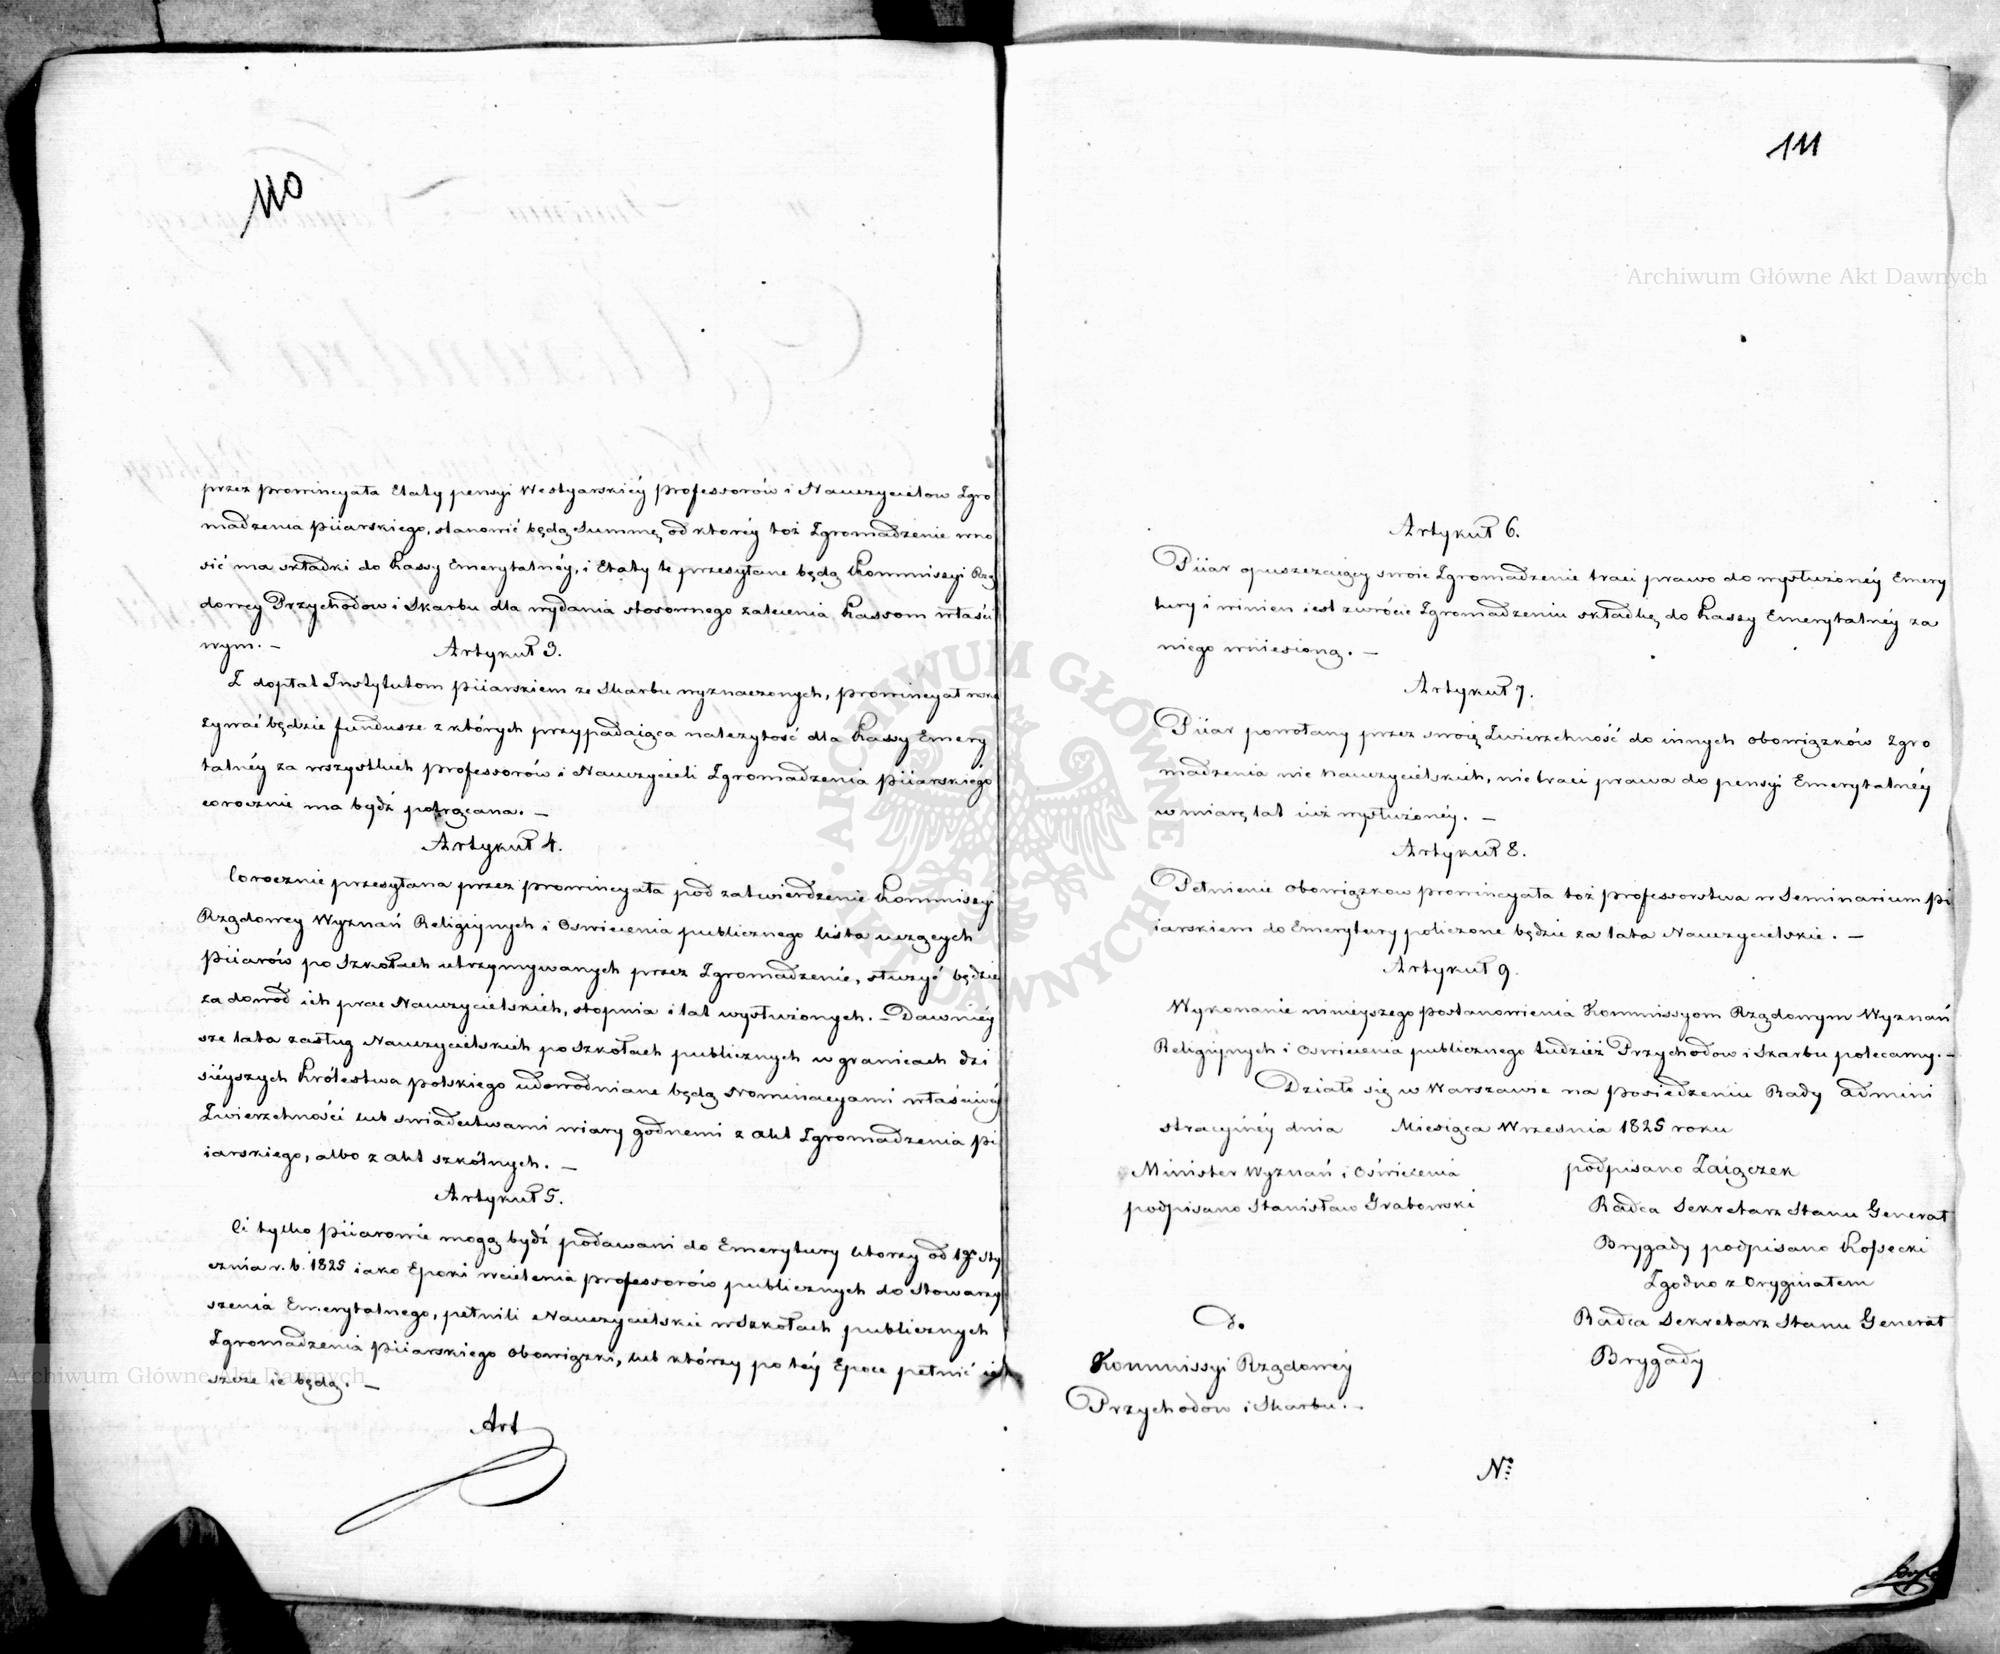 110
przez prowincyała Etaty pensyi Westyarskiéy professorów i Nauczycielow Zgro
madzenia Piiarskiego, stanowić będą Summę, od ktoréy toż Zgromadzenie wno
sić ma składki do Kassy Emerytalnéy, i Etaty te przesyłane będą Kommissyi Rzą
dowey Przychodow i Skarbu dla wydania stosownego zalecenia Kassom właści
wym. —
Artykuł 3.
Z dopłat Instytutom Piiarskiem ze Skarbu wyznaczonych, prowincyał
żywać będzie fundusze z których przypadaiąca należytość dla Kassy Emery
talnéy za wszystkich professorów i Nauczycieli Zgromadzenia Piiarskiégo
corocznie ma bydź potrącana. —
Artykuł 4.
Corocznie przesyłana przez prowincyała pod zatwierdzenie Kommissyi
Rządowey Wyznań Religiynych i Oswiecenia publicznego lista uczących
Piiarów po Szkołach utrzymywanych przez Zgromadzenie, służyć będzie
za dowód ich prac Nauczycielskich, stopnia i lat wysłużonych. — Dawniéy
sze lata zasług Nauczycielskich po szkołach publicznych w granicach dzi
siéyszych Królestwa polskiego udowodniane będą Nominacyami właściwéy
Zwierzchności lub swiadectwami wiary godnemi z akt Zgromadzenia Pi
iarskiego, albo z akt szkólnych. —
Artykuł 5.
Ci tylko Piiarowie mogą bydź podawani do Emerytury ktorzy od 1go Sty
cznia r. b. 1825 iako Epoki wcielenia professorów publicznych do Stowarzy
szenia Emerytalnego, pełnili Nauczycielskie w Szkołach publicznych
Zgromadzenia Piiarskiego obowiązki, lub którzy po téy Epoce pełnić ie
szcze ie będą. —
Art
111
Artykuł 6.
Piiar opuszczaiący swoie Zgromadzenie traci prawo do wysłużonéy Emery
tury i winien iest zwrócić Zgromadzeniu składkę do Kassy Emerytalnéy za
niego wniesioną. —
Artykuł 7.
Piiar powołany przez swoię Zwierzchność do innych obowiązków Zgro
madzenia nie Nauczycielskich, nie traci prawa do pensyi Emerytalnéy
w miarę lat iuż wysłużonéy. —
Artykuł 8.
Pełnienie obowiązkow prowincyała toż professorstwa w Seminarium Pi
iarskiem do Emerytury policzone będzie za lata Nauczycielskie. —
Artykuł 9.
Wykonanie ninieyszego postanowienia Kommissyom Rządowym Wyznań
Religiynych i Oswiecenia publicznego tudzież Przychodow i Skarbu polecamy. —
Działo się w Warszawie na posiedzeniu Rady admini
stracyinéy dnia Miesiąca Września 1825 roku
Minister Wyznań i Oświecenia
podpisano Stanisław Grabowski
podpisano Zaiączek
Radca Sekretarz Stanu Generał
Brygady podpisano Kossecki
Zgodno z Oryginałem
Radca Sekretarz Stanu Generał
Brygady
Do
Kommissyi Rządowéy
Przychodow i Skarbu. —
No
Archiwum Główne Akt Dawnych
Archiwum Główne Akt Dawnych
ARCHIWUM GŁÓWNE AKT DAWNYCH